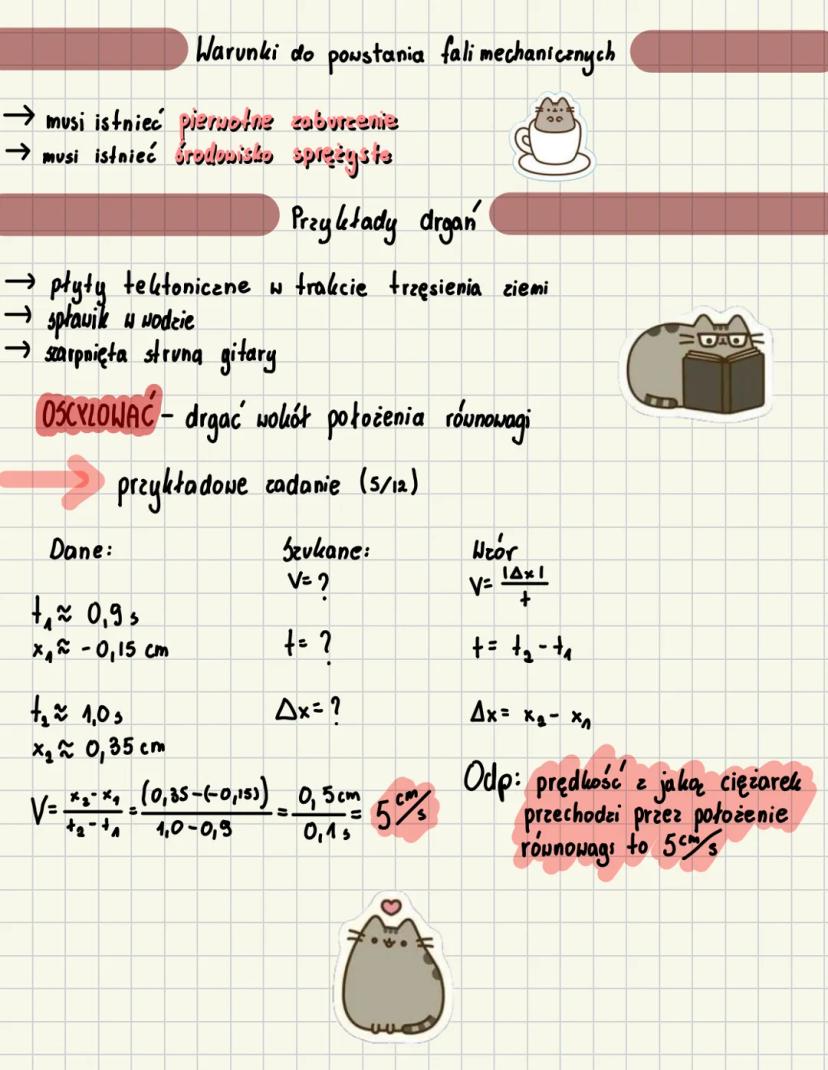 Warunki do powstania fali mechanicznych
→ musi istnieć pierwotne zaburzenie
→ musi istnieć środowisko sprężyste
Przykłady drgań
→ płyty tektoniczne w trakcie trzęsienia ziemi
→ spławik w wodzie
→ szarpnięta struna gitary
OSCYLOWAĆ - drgać wokół położenia równowagi
przykładowe zadanie (5/12)
Dane: Szukane: Wzór
V= ? V= |Δx|/t
t₁≈ 0,9 s
x₁≈ -0,15 cm t= ? t= t₂-t₁
t₂≈ 1,0 s Δx= ? Δx= x₂- x₁
x₂≈ 0,35 cm
V= x₂-x₁/t₂-t₁ = (0,35-(-0,15))/1,0-0,9 = 0,5cm/0,1s = 5 cm/s
Odp: prędkość z jaką ciężarek
przechodzi przez położenie
równowagi to 5 cm/s